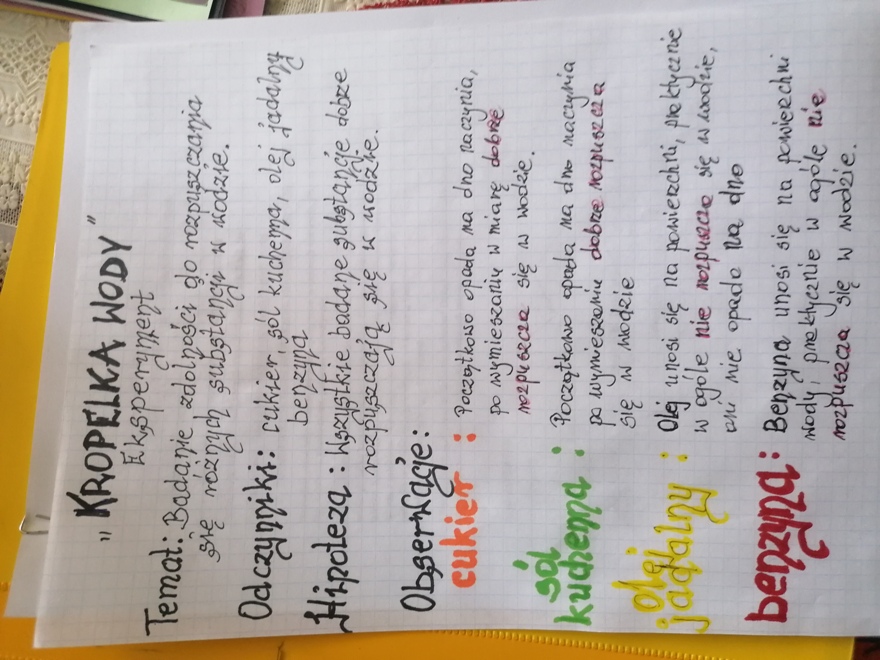 „KROPELKA WODY”
Eksperyment
Temat: Badanie zdolności do rozpuszczania
się różnych substancji w wodzie.
Odczynniki: cukier, sól kuchenna, olej jadalny
benzyna
Hipoteza: Wszystkie badane substancje dobrze
rozpuszczają się w wodzie.
Obserwacje:
cukier: Początkowo opada na dno naczynia,
po wymieszaniu w miarę dobrze
rozpuszcza się w wodzie.
sól kuchenna: Początkowo opada na dno naczynia
po wymieszaniu dobrze rozpuszcza
się w wodzie
olej jadalny: Olej unosi się na powierzchni, praktycznie
w ogóle nie rozpuszcza się w wodzie,
ani nie opada na dno
benzyna: Benzyna unosi się na powierzchni
wody, praktycznie w ogóle nie
rozpuszcza się w wodzie.